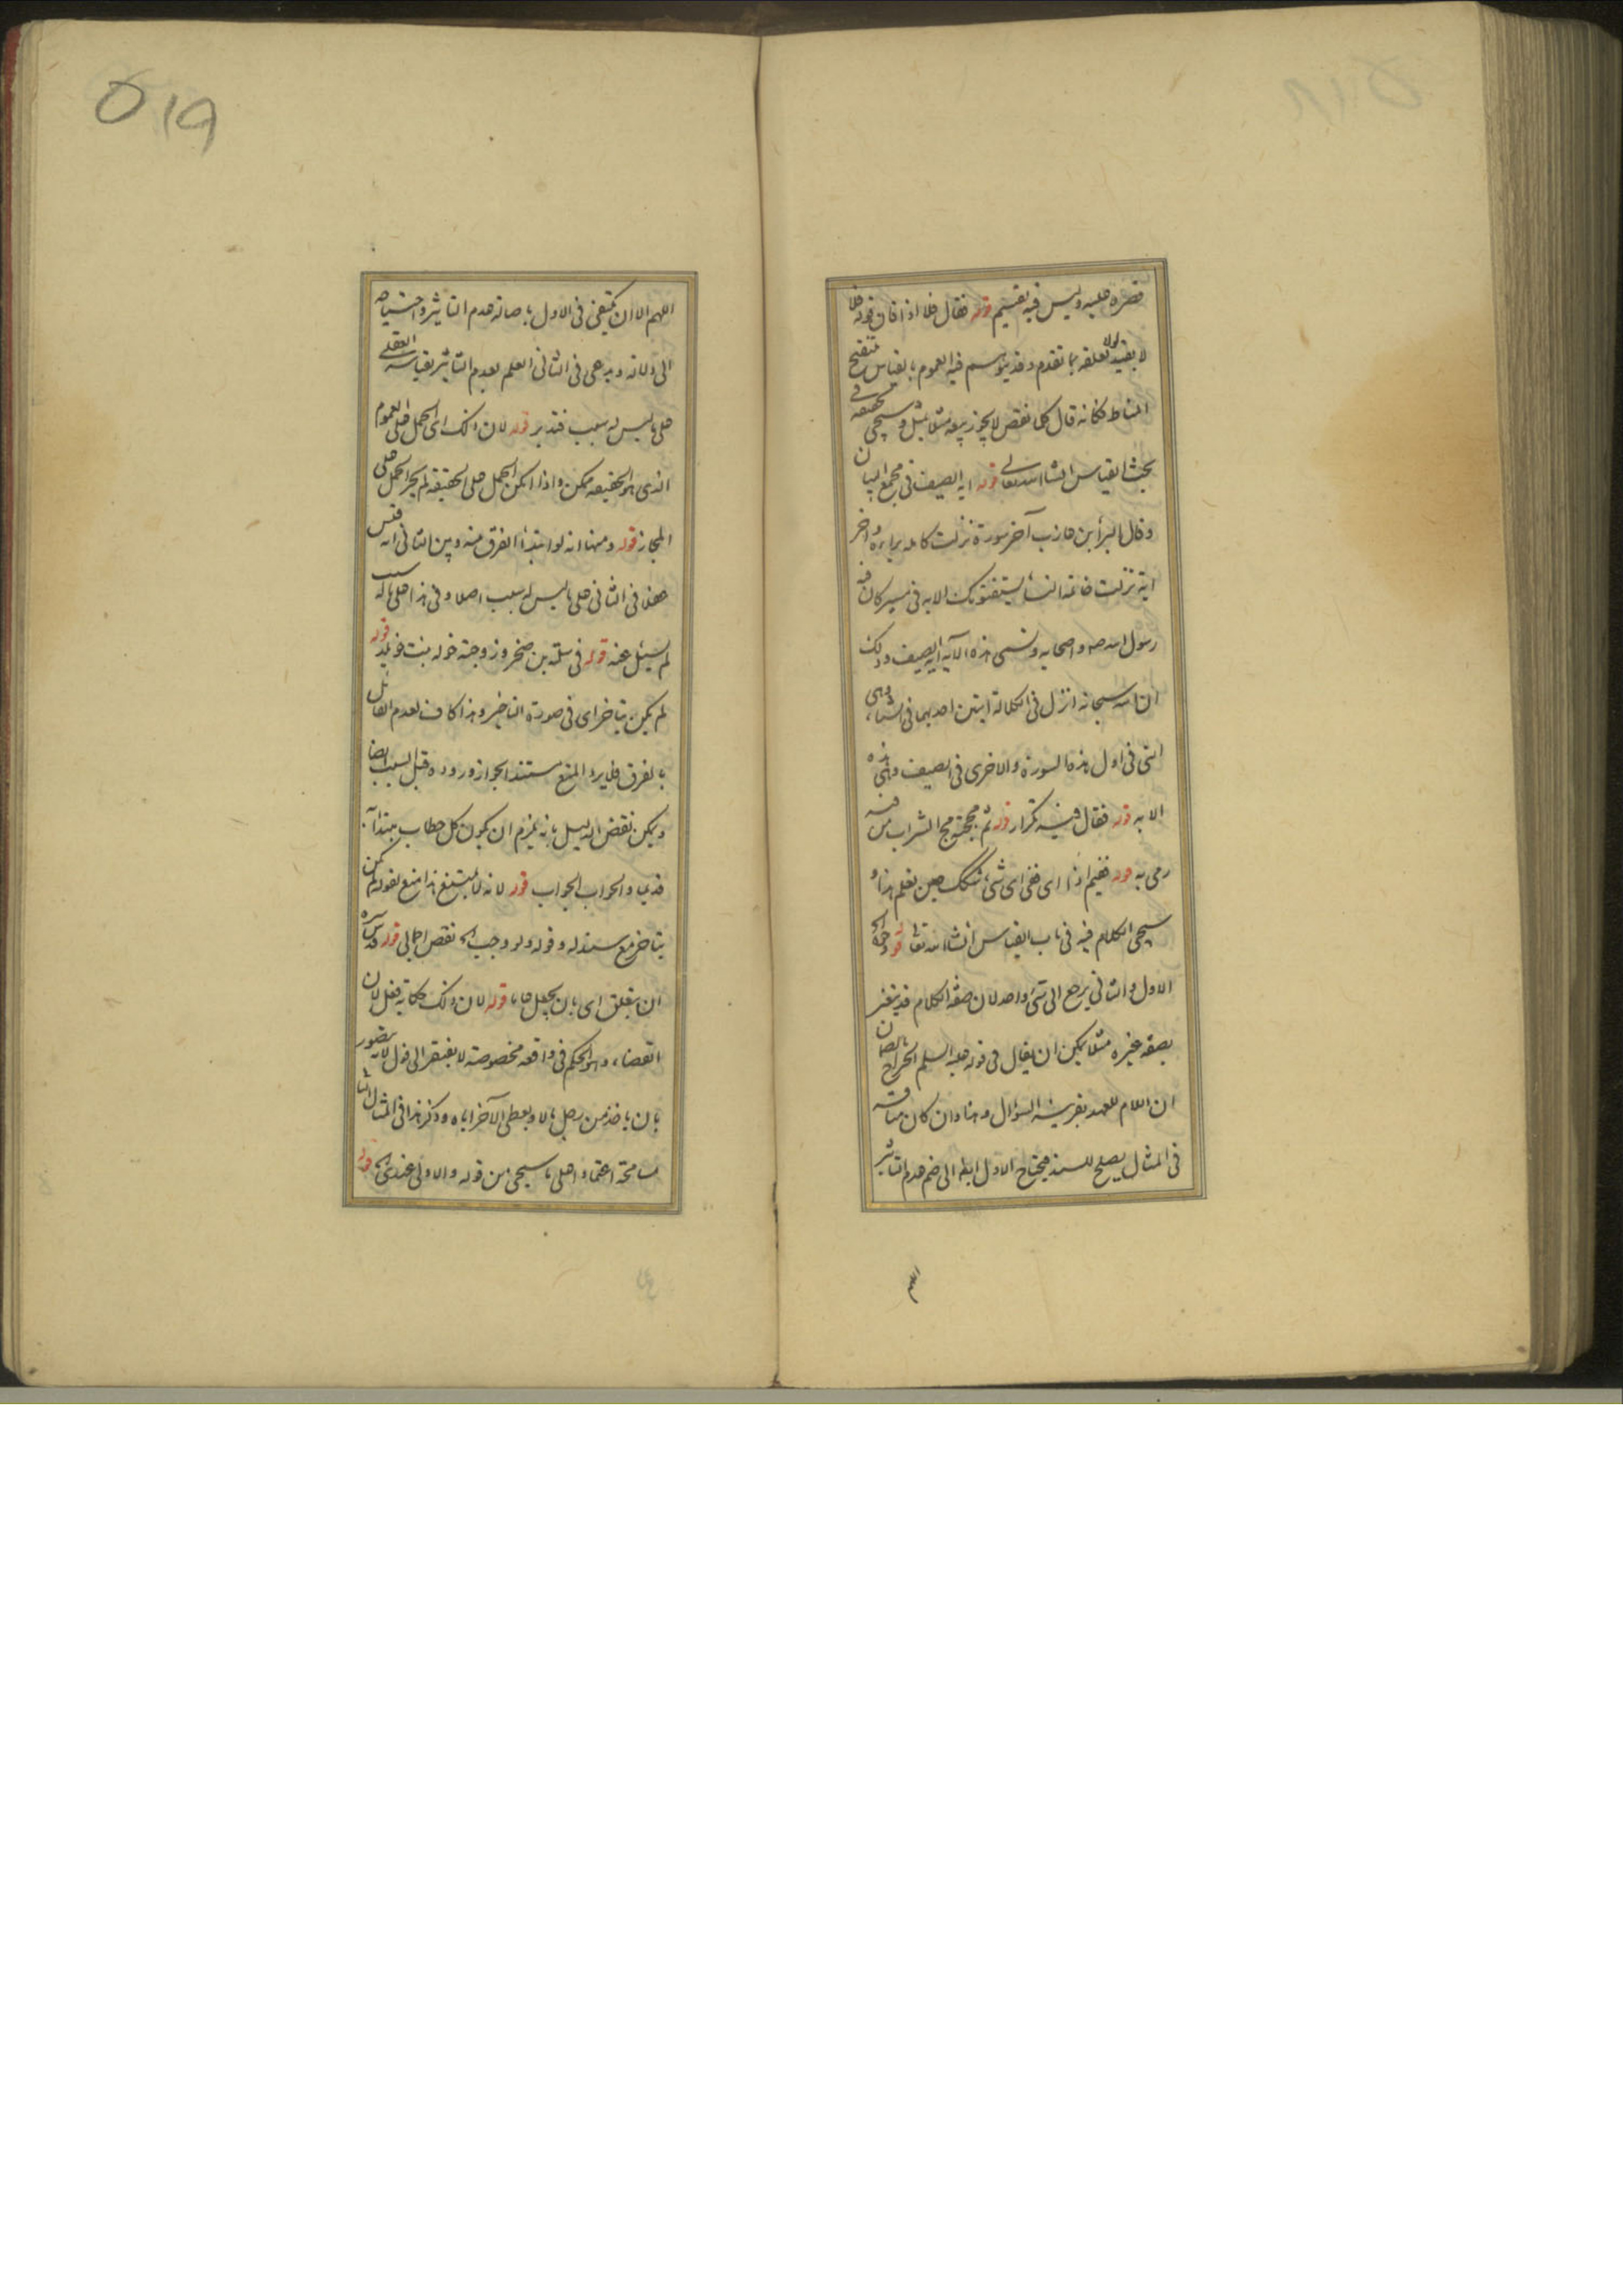 قصره عليه وليس فيه تقسيم قوله فقال فلا اذا فان قوله فلا
لا يفيد لولا تعلقه بما تقدم وقد يتوسم فيه العموم بالقياس تنقيح
المناط فكانه قال كلما نقص لا يجوز بيعه مثلا بمثل وسيجئ تحقيقه في
بحث القياس انشا الله تعالى قوله اية الصيف في مجمع البيان
وقال البرأ بن عازب آخر سورة نزلت كاملة براءة واخر
اية نزلت خاتمة النساء يستفتونك الاية في مسير كان فيه
رسول الله صه واصحابه وتسمى هذه الآية آية الصيف وذلك
ان الله سبحانه انزل في الكلالة ايتين احديهما في الشتاء وهي
التي في اول هذه السورة والاخرى في الصيف وهي هذه
الاية قوله فقال فيه تكرار قوله ثم مججته مج الشراب من فيه
رمى به قوله ففيم اذا اى ففى اى شئ شكك حين تعلم هذا و
سيجئ الكلام فيه في باب القياس انشا الله تعا قوله وجه الخ
الاول والثاني يرجع الى شئ واحد لان صفة الكلام قد يتغير
بصفة غيره مثلا يمكن ان يقال في قوله عليه السلم الخراج بالضمان
ان اللام للعهد بقرينة السؤال وهنا وان كان مناقشة
في المثال يصلح للسند فيحتاج الاول ايضا الى ضم عدم التاثير
اللهم
اللهم الا ان يكتفى في الاول باصالة عدم التاثير واحتياجه
الى دلالة ويدعى في الثاني العلم بعدم التاثير بقياسه العقلى
على ما ليس له سبب فتدبر قوله لان ذلك اى الحمل على العموم
الذى هو الحقيقة ممكن واذا امكن الحمل على الحقيقة لم يجز الحمل على
المجاز قوله ومنها انه لو ابتدأ الفرق منه وبين الثاني انه قيس
ههنا في الثاني على ما ليس له سبب اصلا وفى هذا على ما له سبب
لم يسئل عنه قوله في سلمة بن صخر وزوجته خولة بنت خويلد قوله
لم يكن يتاخر اى في صورة التاخير وهذا كاف لعدم القائل
بالفرق فلا يرد المنع مستند الجواز وروده قبل السبب ايضا
ويمكن نقض الدليل بانه يلزم ان يكون كل خطاب مبتدا به
قديما والجواب الجواب قوله لانه لا يمتنع هذا منع لقوله لم يكن
يتاخر مع سند له وقوله ولو وجب الخ نقض اجمالى قوله قدس سره
ان يتعلق اى بان يجعل عاما قوله لان ذلك حكاية فعل لان
القضاء وهو الحكم في واقعة مخصوصة لا يفتقر الى قول لانه يتصور
بان ياخذ من رجل مالا ويعطى الآخر اياه وذكر هذا في المثال الثا
مسامحة اعتمادا على ما سيجئ من قوله والاولى عندى الخ قوله
٥١٩